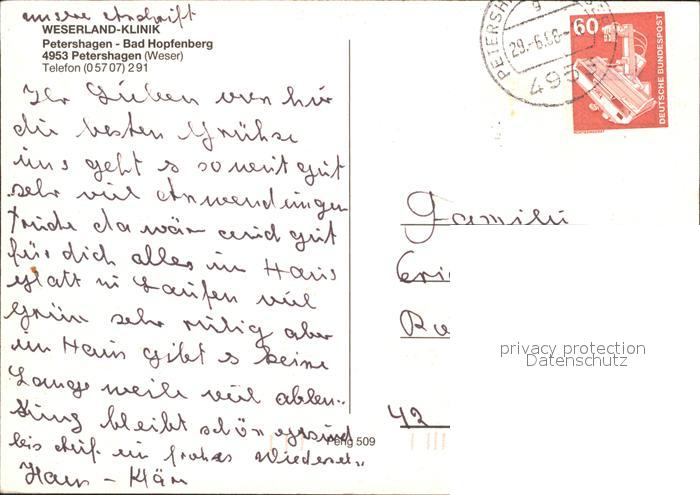 unsere Anschrift
WESERLAND-KLINIK
Petershagen - Bad Hopfenberg
4953 Petershagen (Weser)
Telefon (05707) 291
Ihr Lieben von hir
die besten Grühse
uns geht es so weit gut
sehr viel Anwendungen
da wär auch gut
für dich alles im Haus
glatt zu Laufen viel
Grün sehr ruhig aber
im Haus gibt es keine
Lange weile viel ablen-
kung bleibt schön gesund
bis auf ein frohes Wiederseh-
Hans - Klär
Peng 509
PETERSH
29.-6.88-
4953
60
DEUTSCHE BUNDESPOST
Familie
Eri
Ro
42
privacy protection
Datenschutz